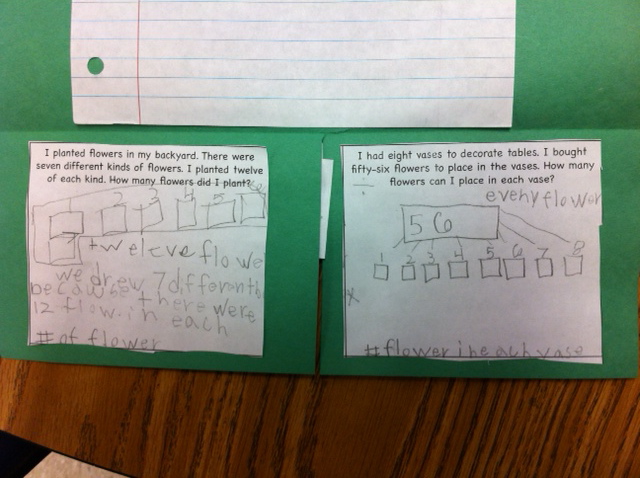 I planted flowers in my backyard. There were
seven different kinds of flowers. I planted twelve
of each kind. How many flowers did I plant?
2 3 4 5 6
7 tweleve flowe
we drew 7 different
because there were
12 flow. in each
# of flower
I had eight vases to decorate tables. I bought
fifty-six flowers to place in the vases. How many
flowers can I place in each vase?
÷ eveny flower
56
1 2 3 4 5 6 7 8
x
# flower in each vase